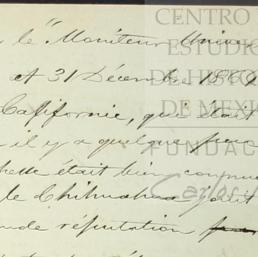 le "Moniteur Unive
et 31 Décembre 186
Californie, qui était
il y a quelque
était bien connue
le Chihuahua
réputation
CENTRO
ESTUDIO
DE HISTOR
DE MEXI
FUNDAC
Carlos S